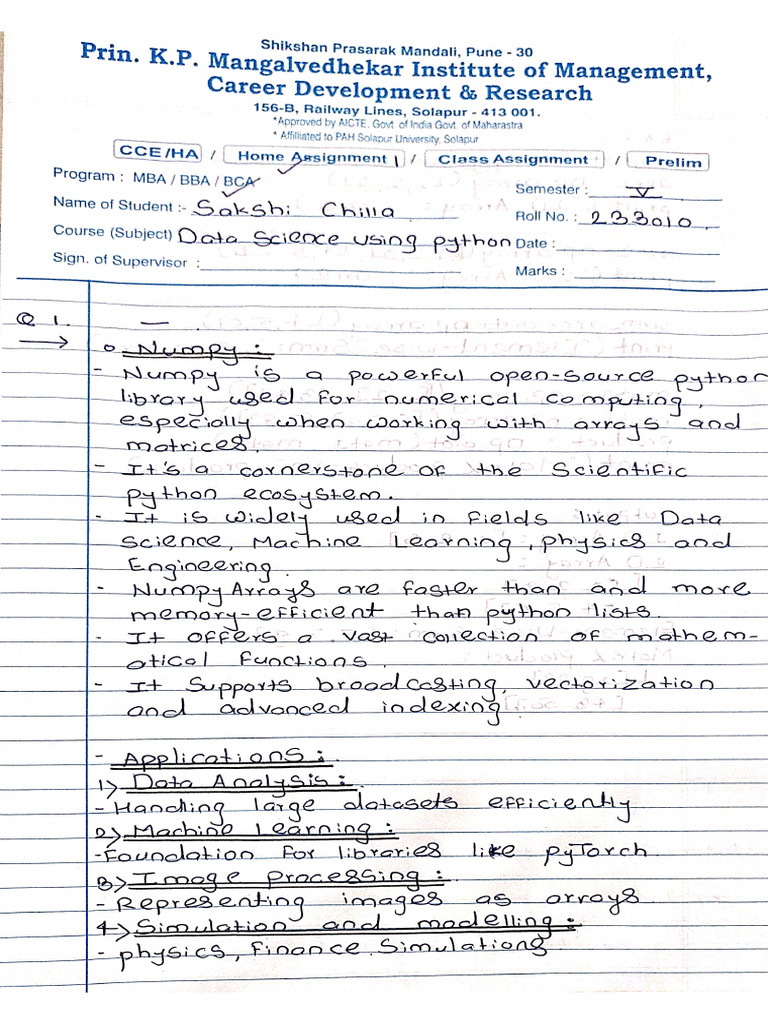 Shikshan Prasarak Mandali, Pune - 30
Prin. K.P. Mangalvedhekar Institute of Management,
Career Development & Research
156-B, Railway Lines, Solapur - 413 001.
*Approved by AICTE. Govt. of India Govt. of Maharastra
* Affilliated to PAH Solapur University, Solapur
CCE/HA / Home Assignment 1 / Class Assignment / Prelim
Program : MBA / BBA / BCA
Semester : V
Name of Student :- Sakshi Chilla
Roll No. : 233010
Course (Subject) Data Science using python Date :
Sign. of Supervisor :
Marks :
Q 1. —
→ o Numpy :
- Numpy is a powerful open-source python
library used for numerical computing,
especially when working with arrays and
matrices.
- It's a cornerstone of the Scientific
python ecosystem.
- It is widely used in fields like Data
Science, Machine Learning, physics and
Engineering.
- Numpy Arrays are faster than and more
memory-efficient than python lists.
- It offers a vast collection of mathem-
atical functions.
- It supports broadcasting, vectorization
and advanced indexing.
- Applications :
1) Data Analysis :
- Handling large datasets efficiently
2) Machine Learning :
- Foundation for libraries like pyTorch
3) Image processing :
- Representing images as arrays
4) Simulation and modelling :
- physics, finance simulations